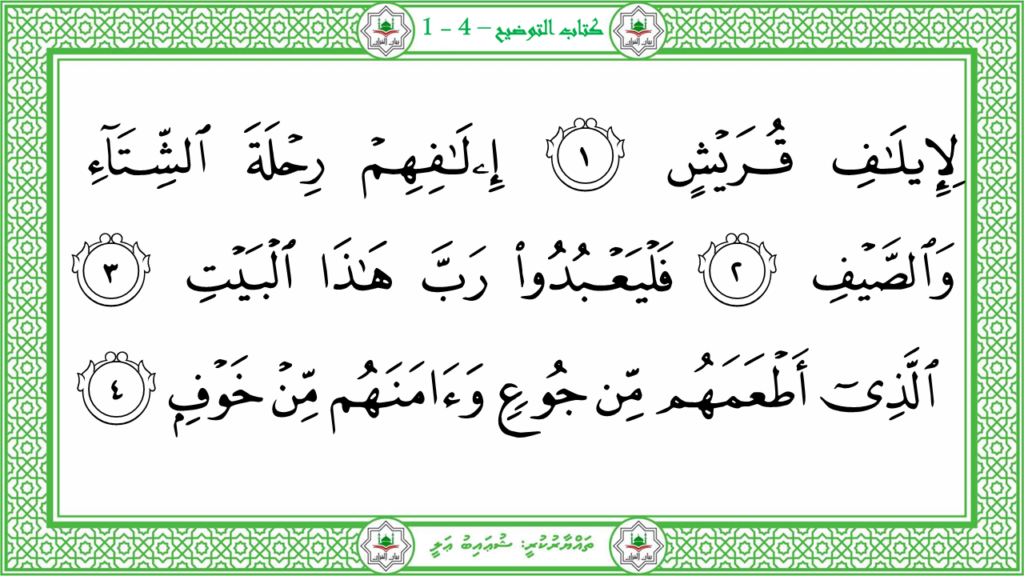 كتاب التوضيح – 4 - 1
لِإِيلَـٰفِ قُرَيْشٍ ١ إِۦلَـٰفِهِمْ رِحْلَةَ ٱلشِّتَآءِ
وَٱلصَّيْفِ ٢ فَلْيَعْبُدُوا۟ رَبَّ هَـٰذَا ٱلْبَيْتِ ٣
ٱلَّذِىٓ أَطْعَمَهُم مِّن جُوعٍ وَءَامَنَهُم مِّنْ خَوْفٍۭ ٤
ތައްޔާރުކުރީ: ޝުޢައިބު ޢަލީ